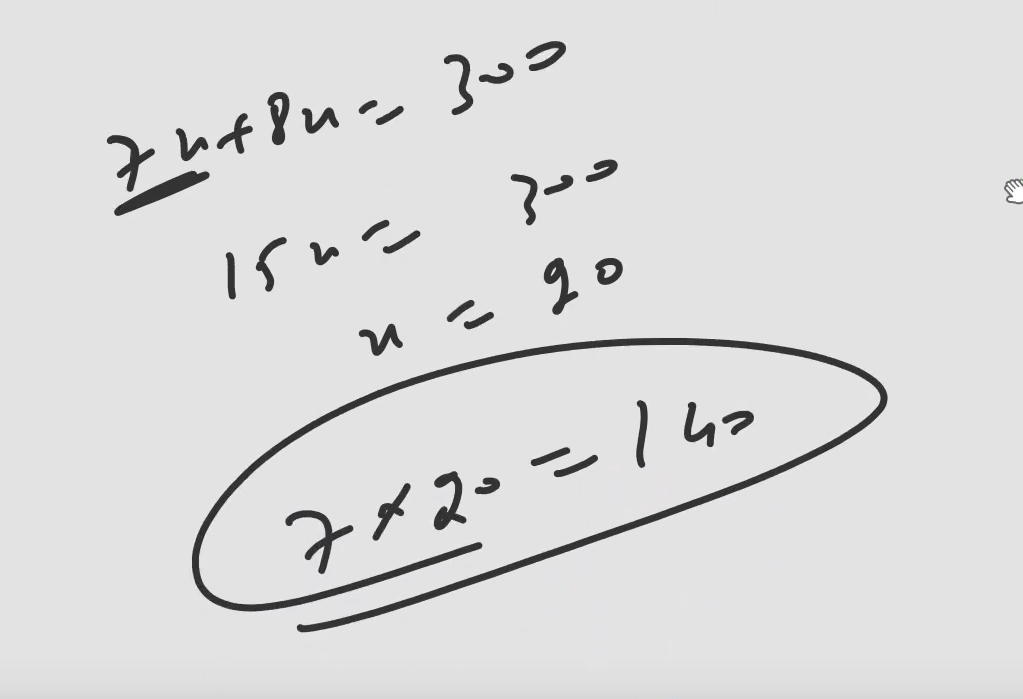 7x+8x=300
15x=300
x=20
7×20=140